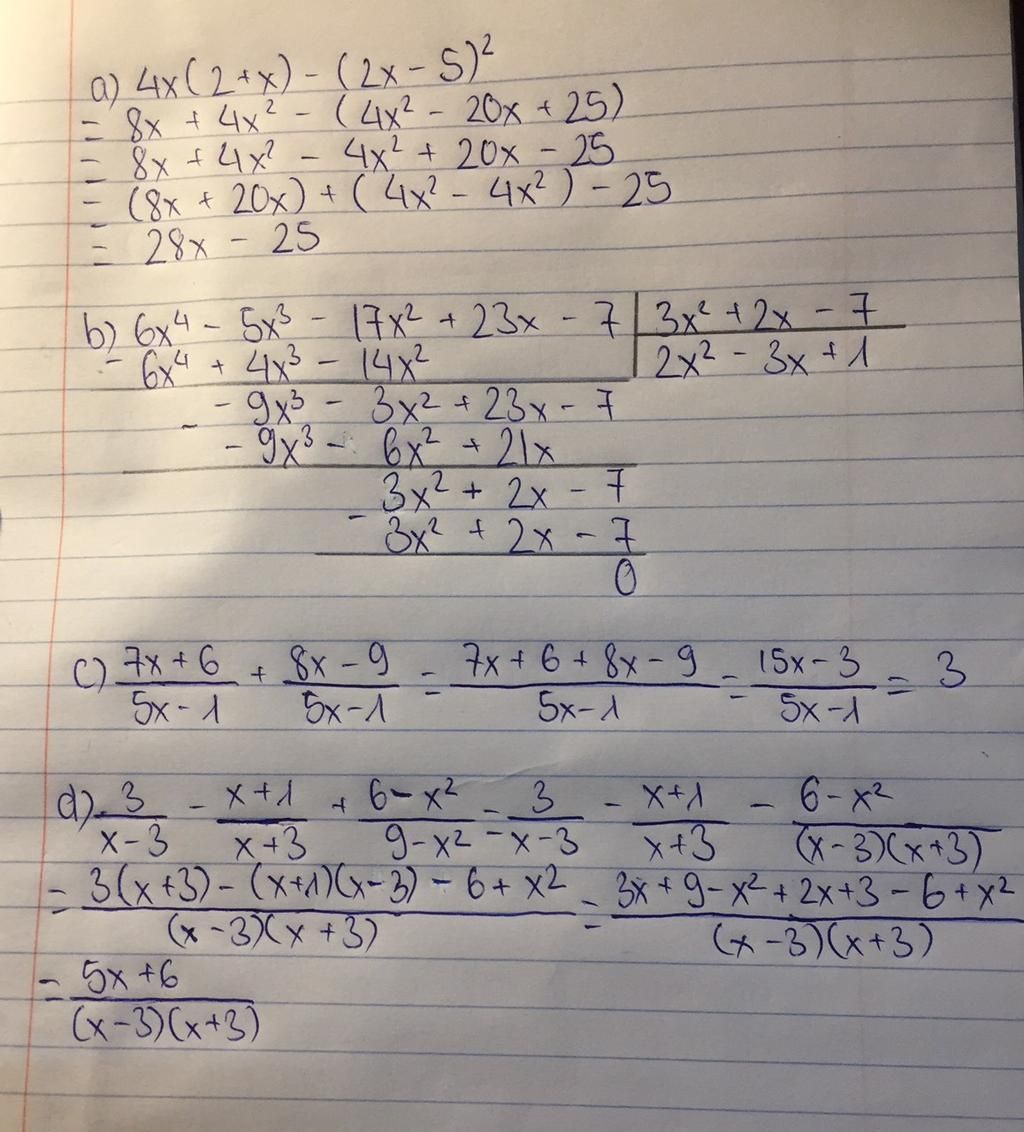 a) 4x(2+x) - (2x - 5)²
= 8x + 4x² - (4x² - 20x + 25)
= 8x + 4x² - 4x² + 20x - 25
= (8x + 20x) + (4x² - 4x²) - 25
= 28x - 25
b) 6x⁴ - 5x³ - 17x² + 23x - 7 | 3x² + 2x - 7
- 6x⁴ + 4x³ - 14x² | 2x² - 3x + 1
- 9x³ - 3x² + 23x - 7
- - 9x³ - 6x² + 21x
3x² + 2x - 7
- 3x² + 2x - 7
0
c) (7x+6)/(5x-1) + (8x-9)/(5x-1) = (7x+6+8x-9)/(5x-1) = (15x-3)/(5x-1) = 3
d) 3/(x-3) - (x+1)/(x+3) + (6-x²)/(9-x²) = 3/(x-3) - (x+1)/(x+3) - (6-x²)/((x-3)(x+3))
= (3(x+3) - (x+1)(x-3) - 6 + x²)/((x-3)(x+3)) = (3x+9-x²+2x+3-6+x²)/((x-3)(x+3))
= (5x+6)/((x-3)(x+3))